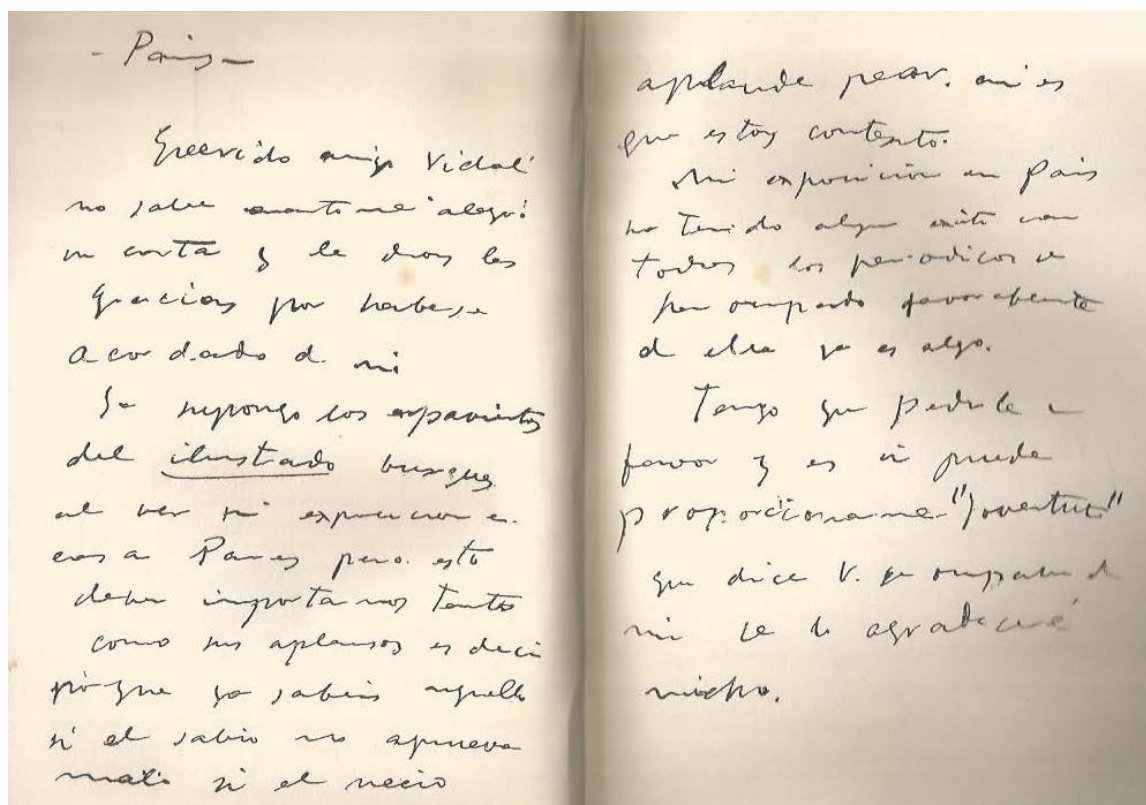 - Paris -
Querido amigo Vidal
no sabe cuanto me alegró
su carta y le doy las
gracias por haberse
acordado d. mi
Ya supongo los aspavientos
del ilustrado burgues
al ver mi exposicion en
casa Pares pero esto
deben importarnos tanto
como sus aplausos es decir
porque ya sabéis aquello
si el sabio no aprueva
malo si el necio
aplaude peor. asi es
que estoy contento.
Mi exposición en Paris
ha tenido algun exito casi
todos los periodicos se
han ocupado favorablemente
d ella ya es algo.
Tengo que pedirle un
favor y es si puede
proporcionarme "Joventut"
que dice V. se ocupaba d
mi se lo agradeceré
mucho.